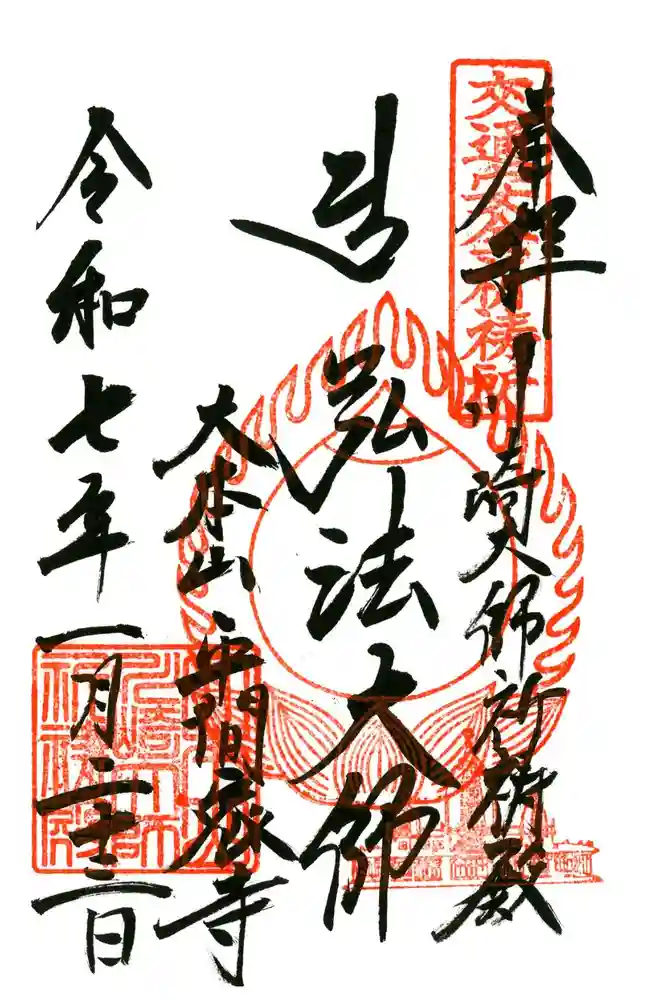 奉拝
川崎大師祈祷殿
交通安全祈祷所
弘法大師
大本山
平間寺
令和七年一月二十三日